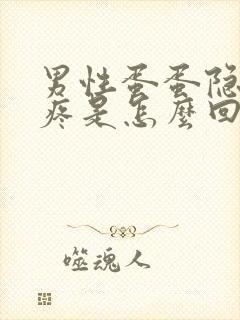 男性蛋蛋隐
疼是怎麼回
噬魂人